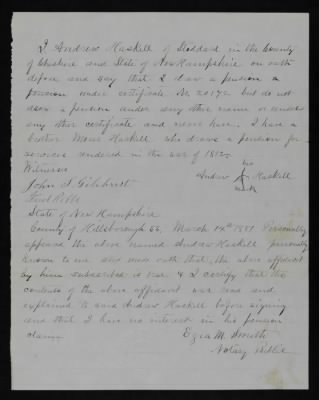 I, Andrew Haskell of Stoddard in the County
of Cheshire and State of New Hampshire on oath
depose and say that I draw a pension a
pension under certificate No. 20172 but do not
draw a pension under any other name or under
any other certificate and never have. I have a
brother Moses Haskell who draws a pension for
services rendered in the war of 1812.
Witnesses his
John S Gilchrest Andrew X Haskell
mark
State of New Hampshire
County of Hillsborough SS. March 14th 1881 Personally
appeared the above named Andrew Haskell personally
known to me and made oath that the above affidavit
by him subscribed is true & I certify that the
contents of the above affidavit was read and
explained to said Andrew Haskell before signing
and that I have no interest in his pension
claim.
Ezra M. Smith
Notary Public